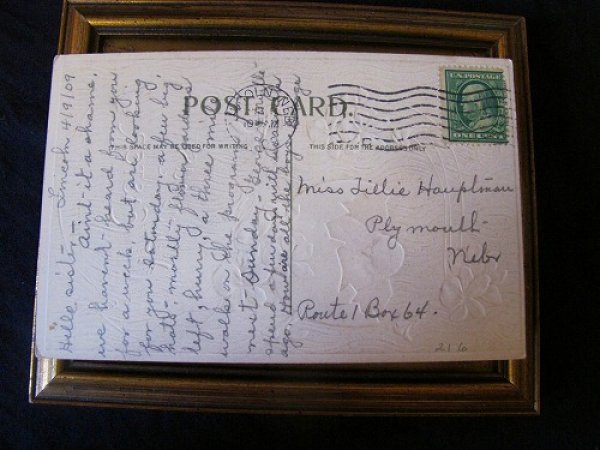 POST CARD.
THIS SPACE MAY BE USED FOR WRITING
THIS SIDE FOR THE ADDRESS ONLY
U.S. POSTAGE
ONE CENT
Lincoln 4/9/09
Hello sister—
Aint it a shame.
we haven't heard from you
for a week, but are looking
for you Saturday. a few big
hats— mostly flower gardens
left, hurry, a three mile
walk on the program
next Sunday— George
spend a few days with
ago. How are all the boys
Miss Tillie Hauptman
Plymouth
Nebr
Route 1 Box 64.
216